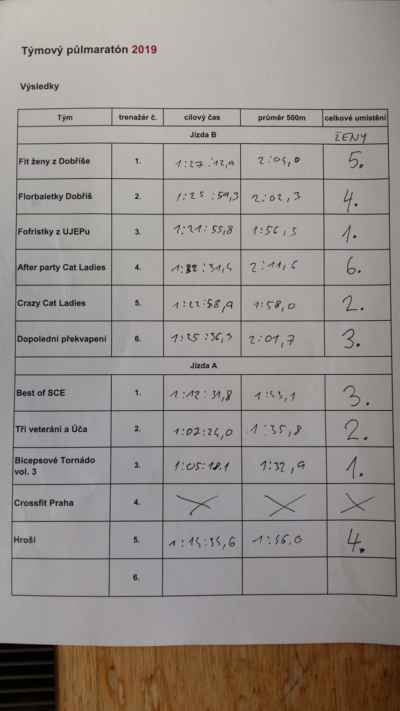 Týmový půlmaratón 2019
Výsledky
Tým trenažér č. cílový čas průměr 500m celkové umístění
Jízda B ŽENY
Fit ženy z Dobříše 1. 1:27:12,9 2:04,0 5.
Florbaletky Dobříš 2. 1:25:59,3 2:02,3 4.
Fofristky z UJEPu 3. 1:21:55,8 1:56,5 1.
After party Cat Ladies 4. 1:32:31,4 2:11,6 6.
Crazy Cat Ladies 5. 1:22:58,9 1:58,0 2.
Dopolední překvapení 6. 1:25:36,3 2:01,7 3.
Jízda A
Best of SCE 1. 1:12:31,8 1:43,1 3.
Tři veteráni a Úča 2. 1:07:24,0 1:35,8 2.
Bicepsové Tornádo
vol. 3 3. 1:05:18.1 1:32,9 1.
Crossfit Praha 4. X X X
Hroši 5. 1:14:35,6 1:46,0 4.
6.